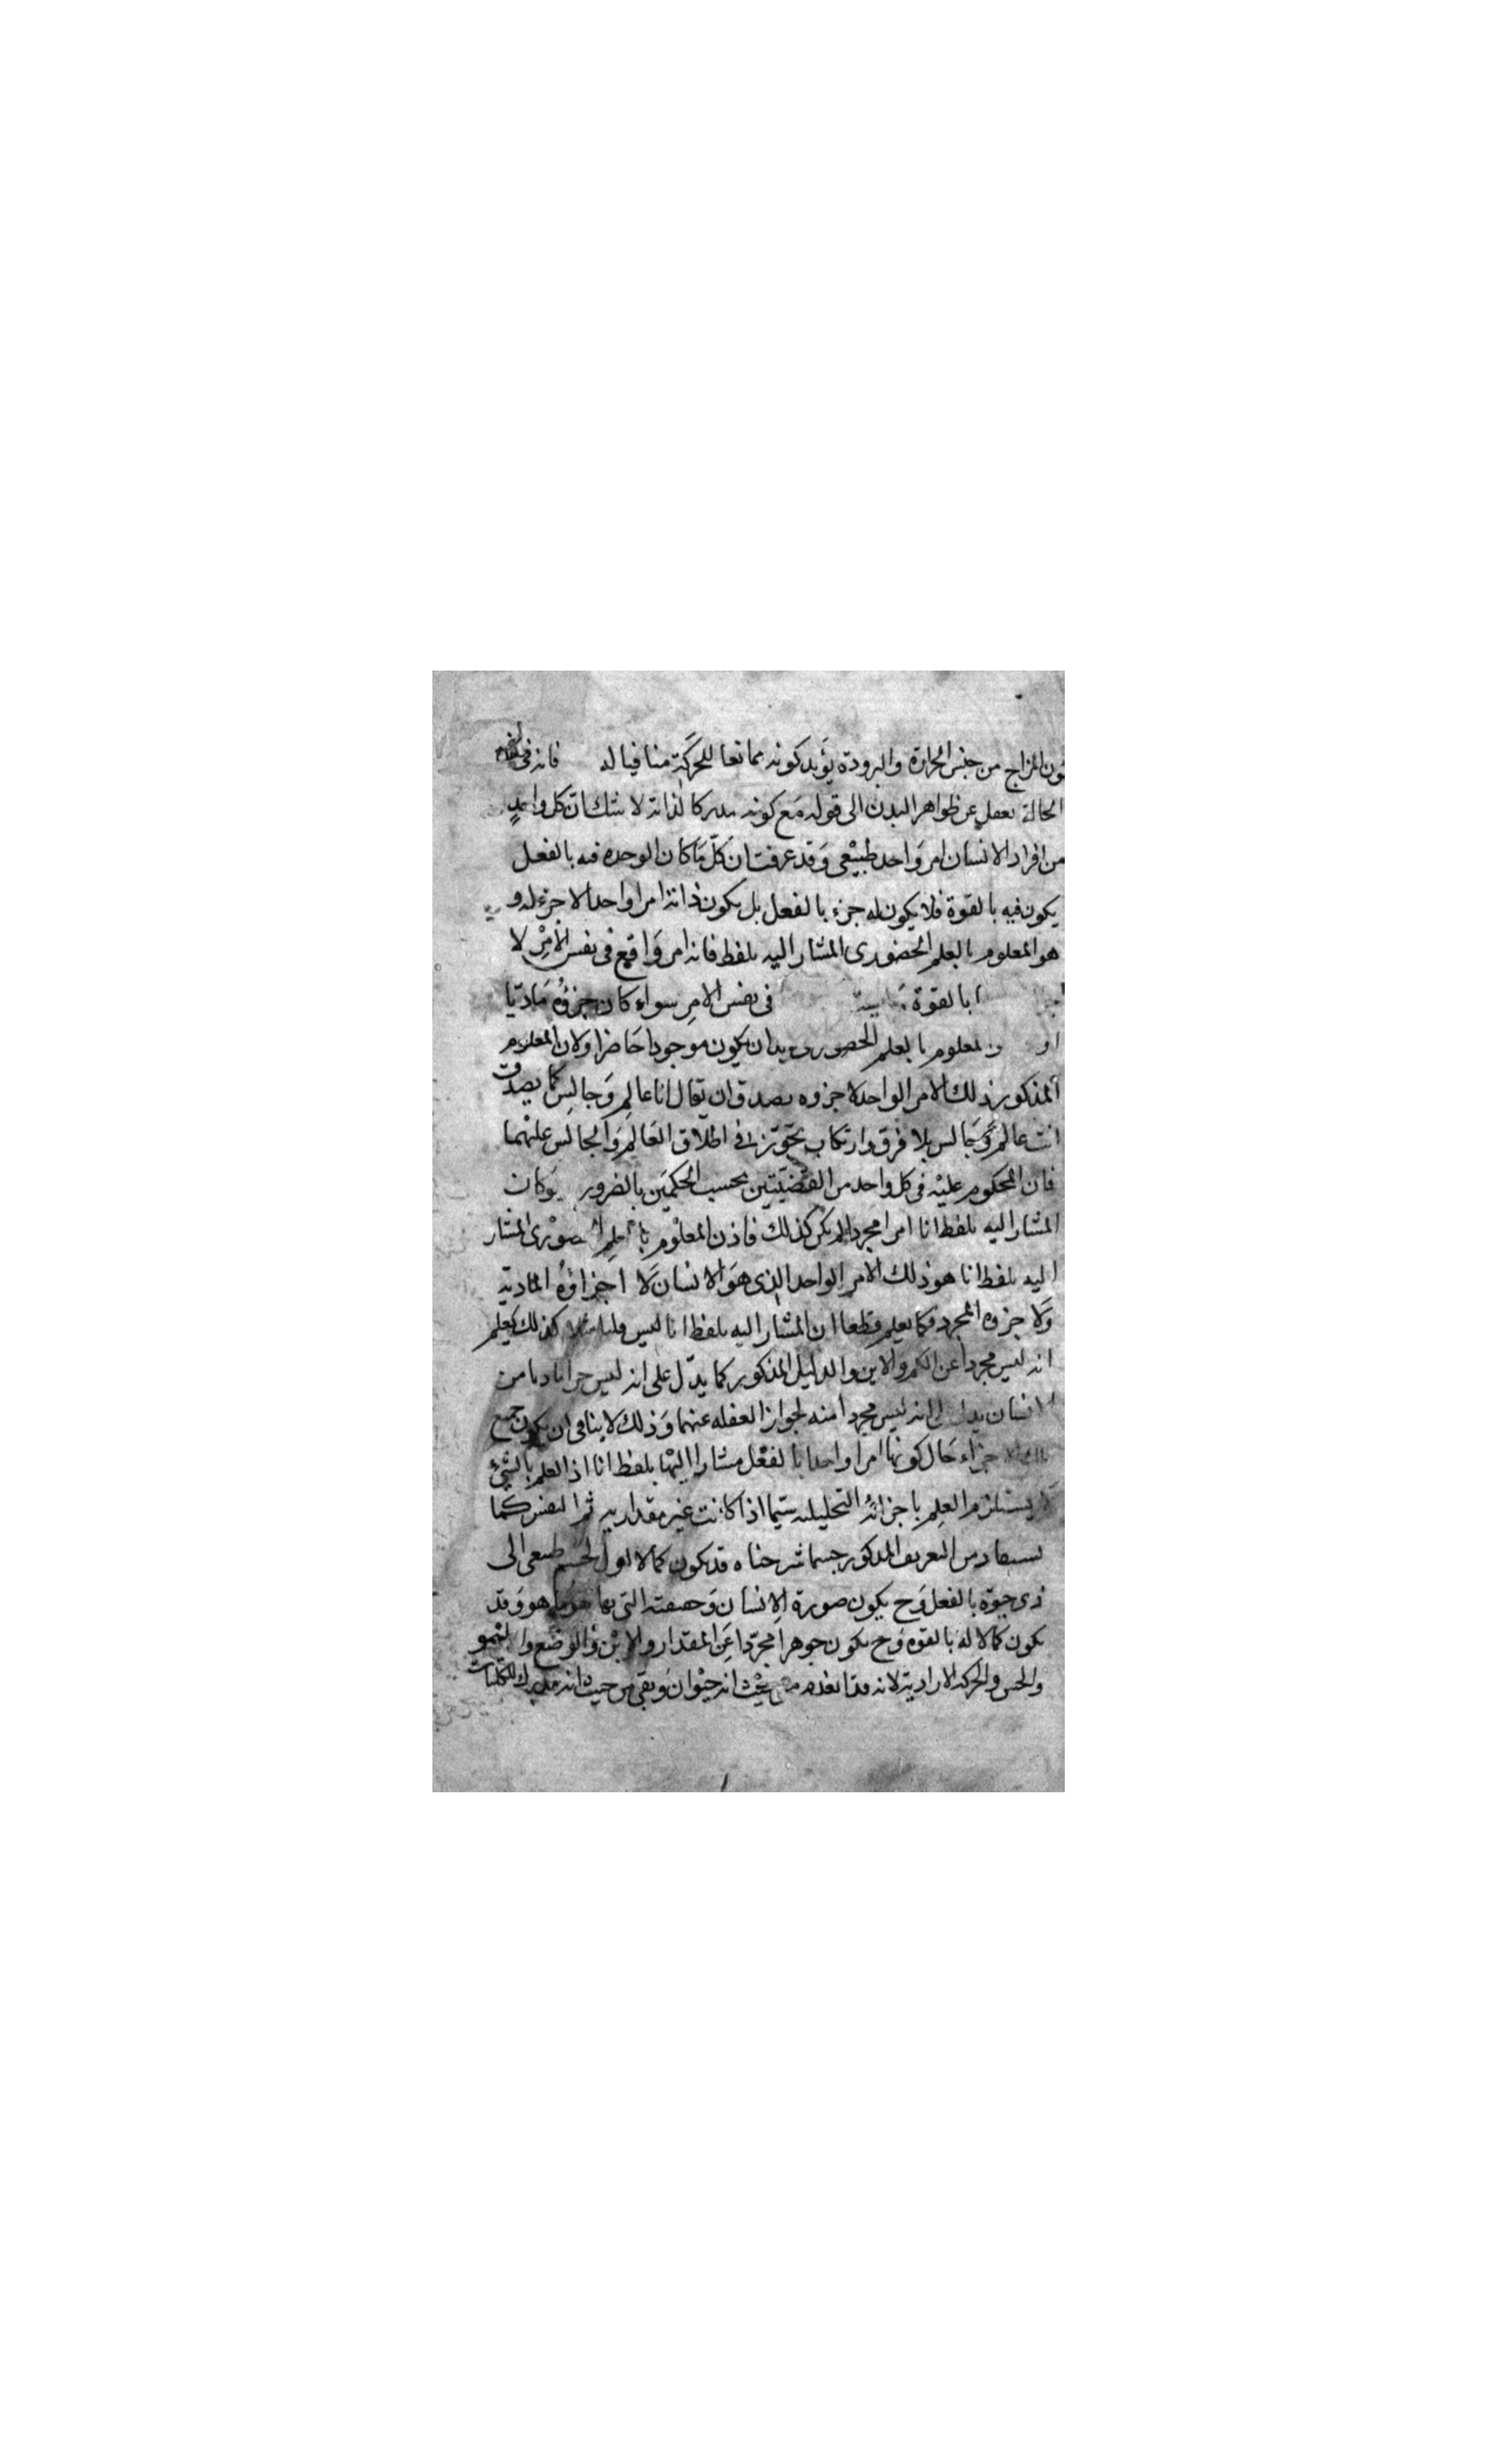 كون المزاج من جنس الحرارة والبرودة يؤيد كونه ممانعا للحركة منافيا له فانه في
الحالة يغفل عن ظواهر البدن الى قوله مع كونه مدركا لذاته لا شك ان كل واحد
من افراد الانسان امر واحد طبيعى وقد عرفت ان كل ما كان الوحدة فيه بالفعل
يكون فيه بالقوة فلا يكون له جزء بالفعل بل يكون ذاته امرا واحدا لا جزء له و
هو المعلوم بالعلم الحضورى المشار اليه بلفظ فانه امر واقع فى نفس الأمر لا
بالقوة فى نفس الامر سواء كان جزؤه ماديا
او معلوم بالعلم الحضورى يكون موجودا حاضرا ولان المعلوم
المذكور ذلك الامر الواحد لا جزوه يصدق ان يقال انا عالم وجالس كما يصدق
انت عالم وجالس بلا فرق وارتكاب تجوّز فى اطلاق العالم والجالس عليهما
فان المحكوم عليه فى كل واحد من القضيّتين بحسب الحكمين بالضرور وكان
المشار اليه بلفظ انا امرا مجردا لم يكن كذلك فاذن المعلوم المشار
اليه بلفظ انا هو ذلك الامر الواحد الذى هو الانسان لا اجزاؤه المادية
ولا جزوه المجرد فكما يعلم قطعا ان المشار اليه بلفظ انا ليس قلبا مثلا كذلك يعلم
انه ليس مجردا عن الكم والاين والدليل المذكور كما يدّل على انه ليس من
الانسان يدل انه ليس مجردا منه لجواز الغفله عنهما وذلك لا ينافى ان يكون جميع
حال كونها امرا واحدا بالفعل مشارا اليها بلفظ انا اذ العلم بالشئ
لا يستلزم العلم باجزائه التحليليه سيّما اذا كانت غير مقداريه ثم النفس كما
يستفاد من التعريف المذكور حسبما شرحناه قد يكون كمالا اول لجسم طبيعى الى
ذى حيوة بالفعل وح يكون صورة الانسان وحصصته التى بها هو ما هو وقد
يكون كمالا له بالقوه وح يكون جوهرا مجرّدا عن المقدار والاين والوضع والنمو
والحس والحركه الاراديه لانه انه حيوان وبقى من حيث انه مدرك للكليات